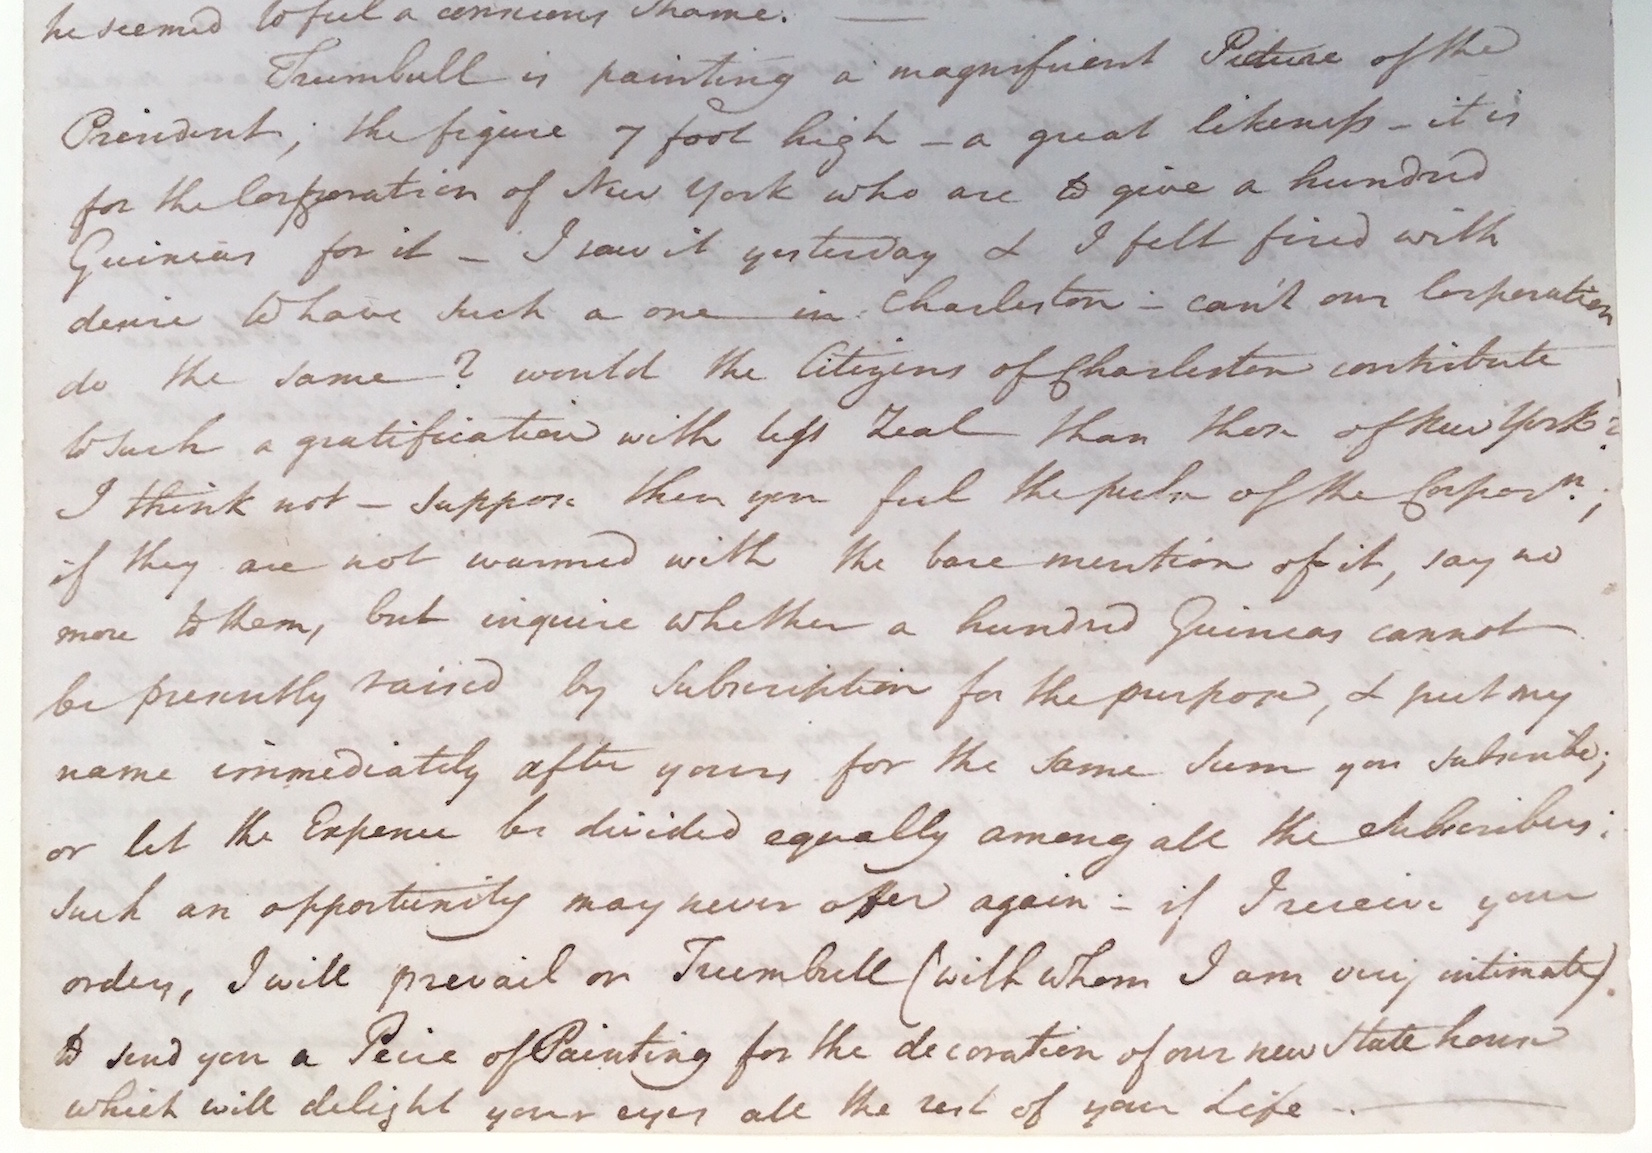 he seemed to feel a conscious shame. —
Trumbull is painting a magnificent Picture of the
President; the figure 7 foot high - a great likeness - it is
for the Corporation of New York who are to give a hundred
Guineas for it - I saw it yesterday & I felt fired with
desire to have such a one in Charleston - can't our Corporation
do the same? would the Citizens of Charleston contribute
to such a gratification with less Zeal than those of New York?
I think not - suppose then you feel the pulse of the Corporn.;
if they are not warmed with the bare mention of it, say no
more to them, but inquire whether a hundred Guineas cannot
be presently raised by subscription for the purpose, & put my
name immediately after yours for the same sum you subscribe;
or let the Expence be divided equally among all the subscribers;
such an opportunity may never offer again - if I receive your
orders, I will prevail on Trumbull (with whom I am very intimate)
to send you a Peice of Painting for the decoration of our new State house
which will delight your eyes all the rest of your Life -. —